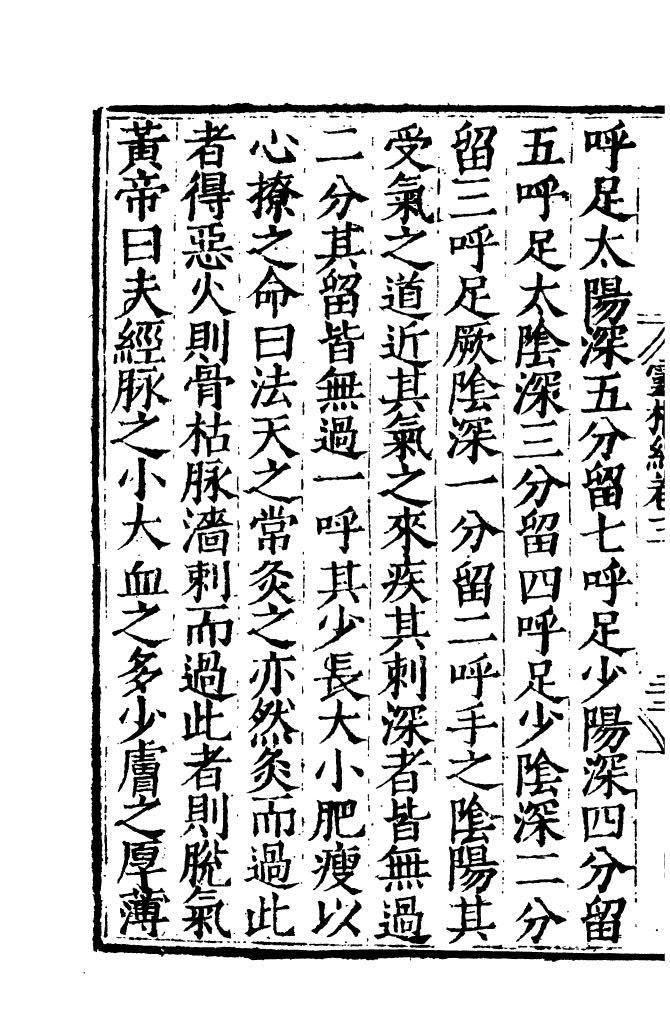 呼足太陽深五分留七呼足少陽深四分留
五呼足太陰深三分留四呼足少陰深二分
留三呼足厥陰深一分留二呼手之陰陽其
受氣之道近其氣之來疾其刺深者皆無過
二分其留皆無過一呼其少長大小肥瘦以
心撩之命曰法天之常灸之亦然灸而過此
者得惡火則骨枯脉濇刺而過此者則脫氣
黃帝曰夫經脉之小大血之多少膚之厚薄